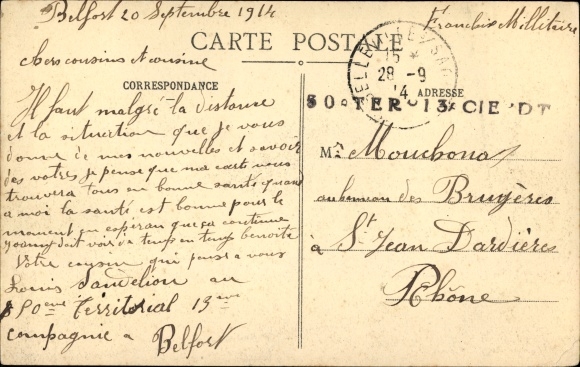 Belfort 20 Septembre 1914
Franchise Millitaire
CARTE POSTALE
Chers cousins et cousine
CORRESPONDANCE
Il faut malgré la distance
et la situation que je vous
donne de mes nouvelles et savoir
des votres je pense que ma carte vous
trouvera tous en bonne santé quand
a moi la santé est bonne pour le
moment en espéran que ça continue
doit voir de temps en temps benoite
Votre cousin qui pense a vous
Louis au
eme Territorial 13me
compagnie a Belfort
28 -9
14
ADRESSE
TER 13 CIE DT
Mr Mouchona
au hameau des Brugères
à St Jean Dardières
Rhône